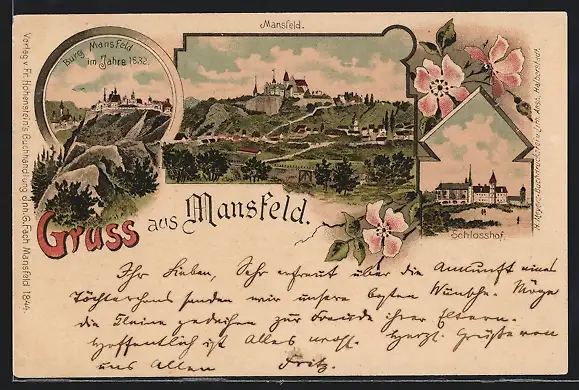 Mansfeld.
Burg Mansfeld
im Jahre 1632.
Schlosshof.
Gruss aus Mansfeld.
Verlag v. Fr. Hohenstein's Buchhandlung Mansfeld 1844.
Ihr Lieben, Sehr erfreut über die Ankunft eines
Töchterchens senden wir unsere besten Wünsche. Möge
die Kleine gedeihen zur Freude ihrer Eltern.
Hoffentlich ist Alles wohl. Herzl. Grüße von
uns Allen Fritz.